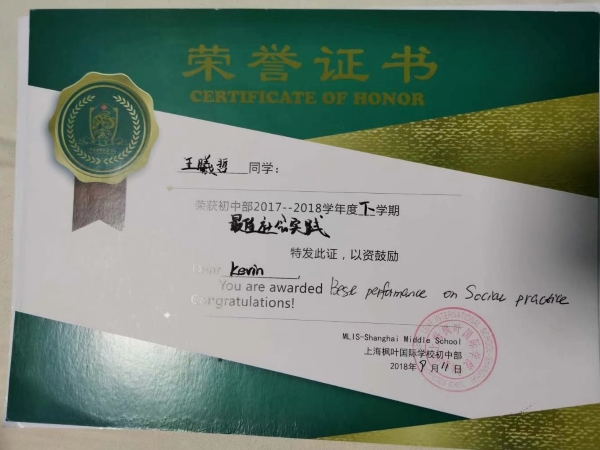 荣誉证书
CERTIFICATE OF HONOR
王曦哲 同学:
荣获初中部2017--2018学年度下学期
最佳社会实践
特发此证，以资鼓励
Dear Kevin ,
You are awarded Best performance on Social practice
Congratulations!
MLIS-Shanghai Middle School
上海枫叶国际学校初中部
2018年9月11日